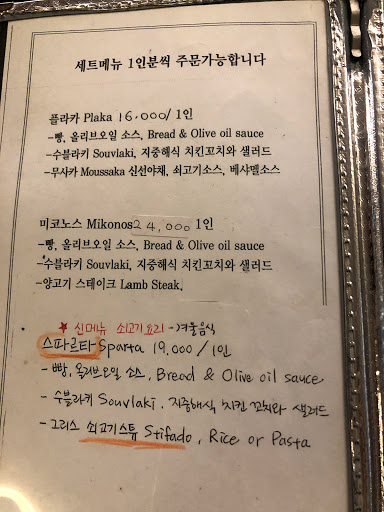 세트메뉴 1인분씩 주문가능합니다
플라카 Plaka 16,000/1인
-빵, 올리브오일 소스, Bread & Olive oil sauce
-수블라키 Souvlaki, 지중해식 치킨꼬치와 샐러드
-무사카 Moussaka 신선야채, 쇠고기소스, 베샤멜소스
미코노스 Mikonos 24,000 1인
-빵, 올리브오일 소스, Bread & Olive oil sauce
-수블라키 Souvlaki, 지중해식 치킨꼬치와 샐러드
-양고기 스테이크 Lamb Steak,
★ 신메뉴 쇠고기요리 -겨울음식
스파르타 Sparta 19.000/1인
- 빵, 올리브오일 소스, Bread & Olive oil sauce
- 수블라키 Souvlaki, 지중해식 치킨 꼬치와 샐러드
- 그리스 쇠고기스튜 Stifado, Rice or Pasta